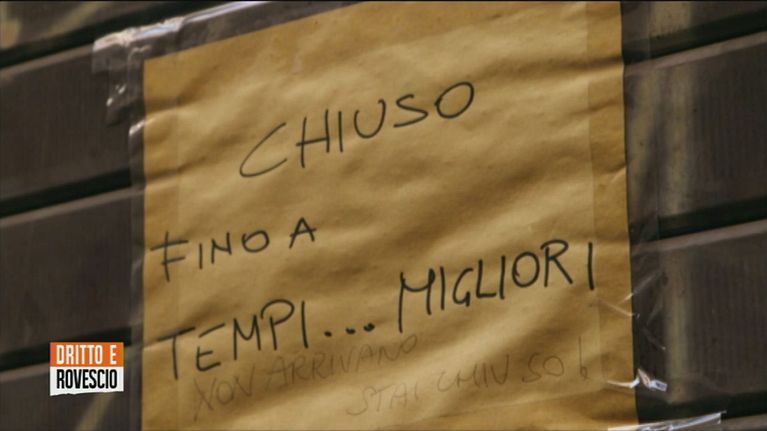 CHIUSO
FINO A
TEMPI... MIGLIORI
NON ARRIVANO
STAI CHIUSO!
DRITTO E
ROVESCIO